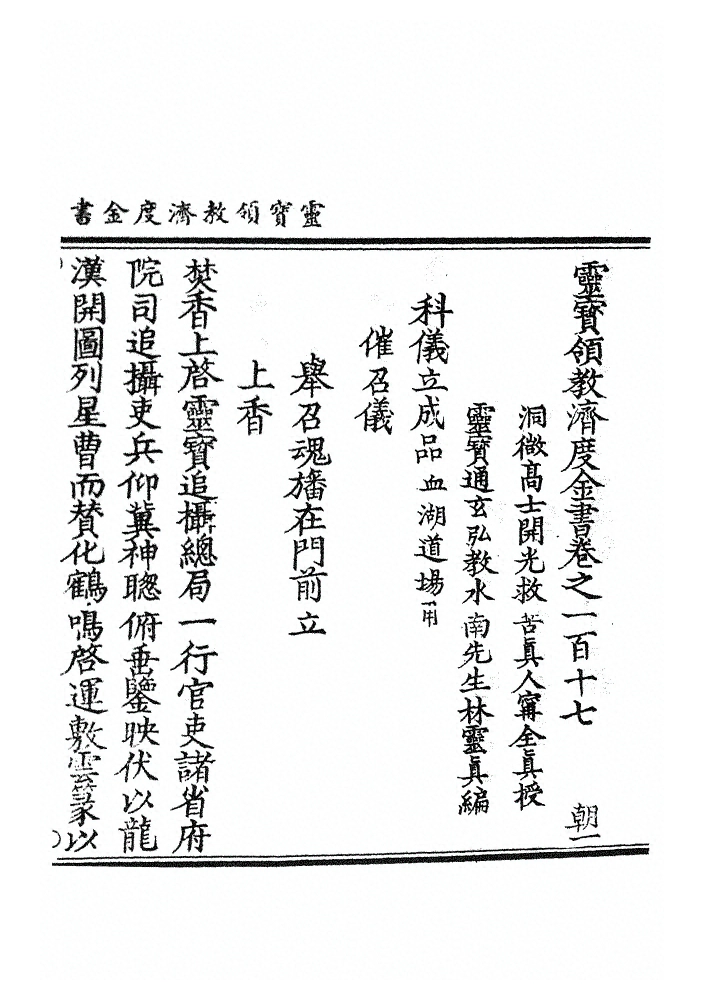 靈寶領教濟度金書
靈寶領教濟度金書卷之一百十七 朝一
洞微高士開光救苦真人甯全真授
靈寶通玄弘教水南先生林靈真編
科儀立成品血湖道場用
催召儀
舉召魂旛在門前立
上香
焚香上啓靈寶追攝總局一行官吏諸省府
院司追攝吏兵仰冀神聰俯垂鑒映伏以龍
漢開圖列星曹而賛化鶴鳴啓運敷雲篆以